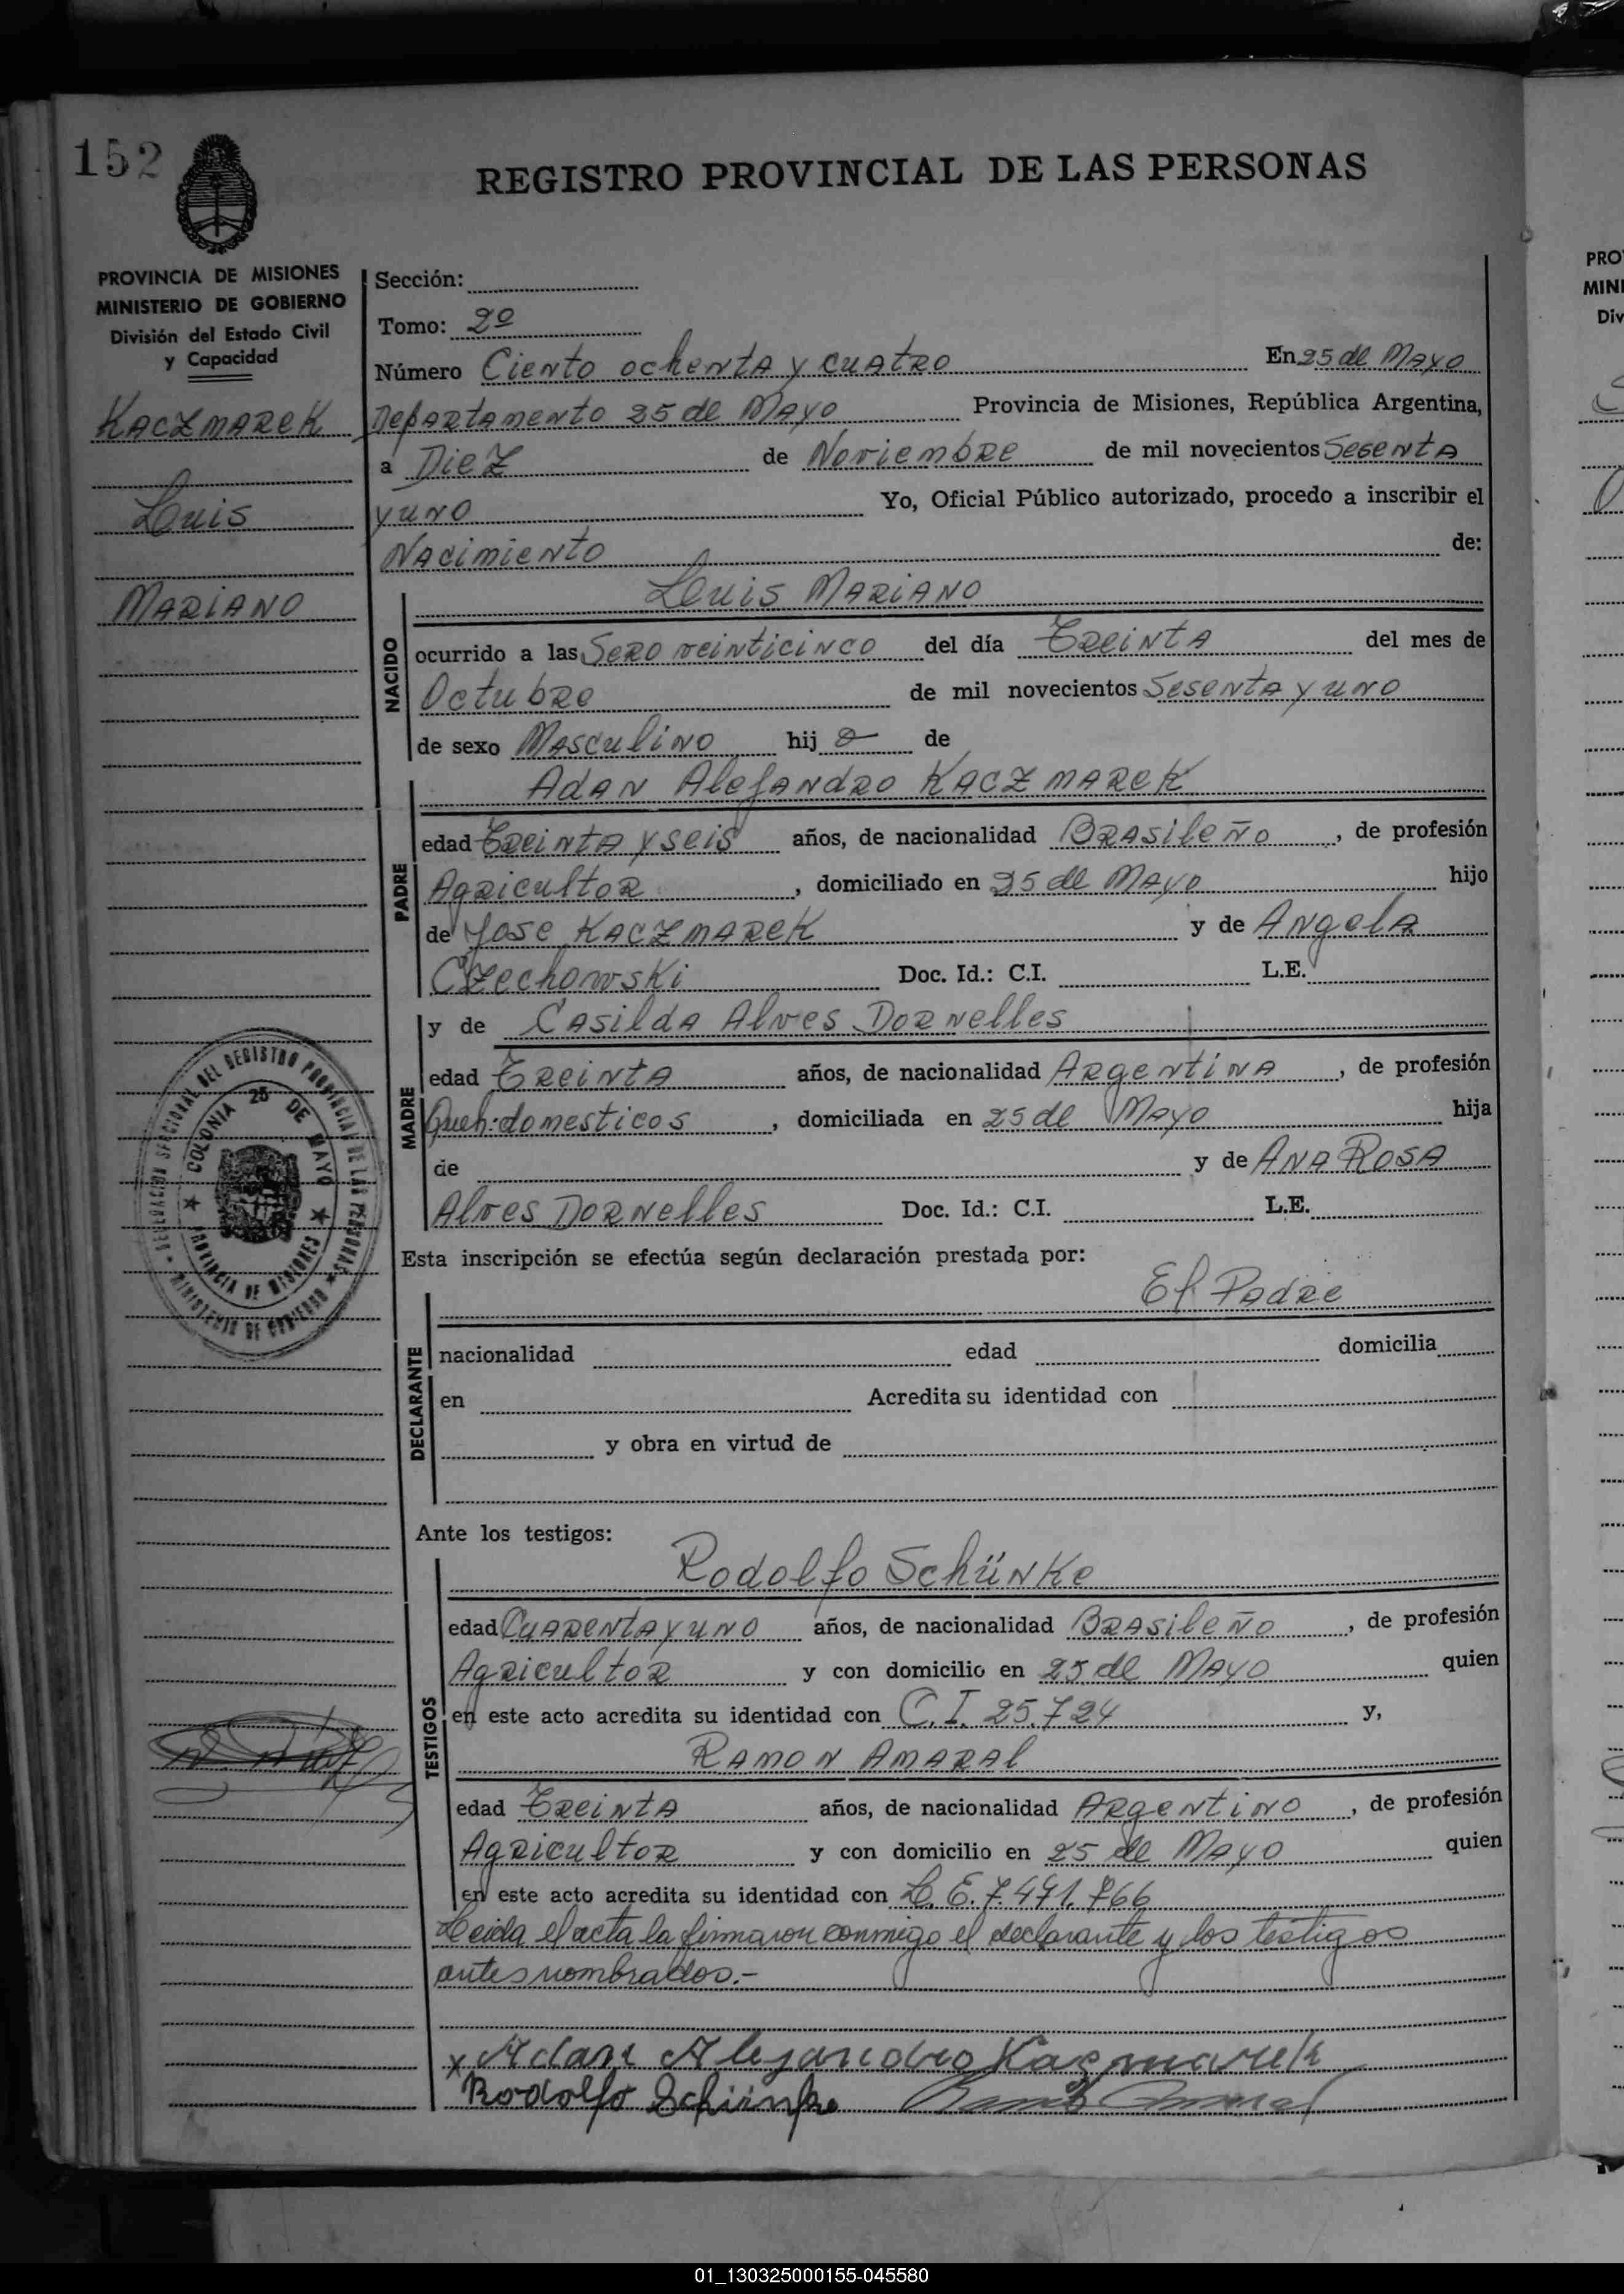 152
REGISTRO PROVINCIAL DE LAS PERSONAS
PROVINCIA DE MISIONES
MINISTERIO DE GOBIERNO
División del Estado Civil
y Capacidad
KACZMAREK
Luis
MARIANO
Sección:
Tomo: 2º
Número Ciento ochenta y cuatro En 25 de Mayo
Departamento 25 de Mayo Provincia de Misiones, República Argentina,
a Diez de Noviembre de mil novecientos Sesenta
y uno Yo, Oficial Público autorizado, procedo a inscribir el
Nacimiento de:
NACIDO
Luis Mariano
ocurrido a las Sero veinticinco del día Treinta del mes de
Octubre de mil novecientos Sesenta y uno
de sexo Masculino hij o de
PADRE
Adan Alejandro Kaczmarek
edad Treinta y seis años, de nacionalidad Brasileño, de profesión
Agricultor, domiciliado en 25 de Mayo hijo
de Jose Kaczmarek y de Angela
Czechowski Doc. Id.: C.I. L.E.
MADRE
y de Casilda Alves Dornelles
edad Treinta años, de nacionalidad Argentina, de profesión
Queh. domesticos, domiciliada en 25 de Mayo hija
de y de Ana Rosa
Alves Dornelles Doc. Id.: C.I. L.E.
DELEGACION SECCIONAL DEL REGISTRO PROVINCIAL DE LAS PERSONAS
MINISTERIO DE GOBIERNO
COLONIA 25 DE MAYO
PROVINCIA DE MISIONES
Esta inscripción se efectúa según declaración prestada por:
El Padre
DECLARANTE
nacionalidad edad domicilia
en Acredita su identidad con
y obra en virtud de
Ante los testigos:
TESTIGOS
Rodolfo Schünke
edad Cuarenta y uno años, de nacionalidad Brasileño, de profesión
Agricultor y con domicilio en 25 de Mayo quien
en este acto acredita su identidad con C.I. 25.724 y,
Ramon Amaral
edad Treinta años, de nacionalidad Argentino, de profesión
Agricultor y con domicilio en 25 de Mayo quien
en este acto acredita su identidad con L.E. 7.471.766
Leida el acta la firmaron conmigo el declarante y los testigos
antes nombrados.-
x Adam Alejandro Kaczmarek
Rodolfo Schünke
PRO
MINI
Div
01_130325000155-045580